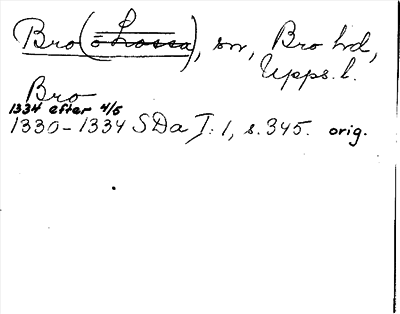 Bro (o Lossa), sn, Bro hd,
Upps. l.
Bro
1334 efter 4/6
1330-1334 SDa I:1, s. 345. orig.